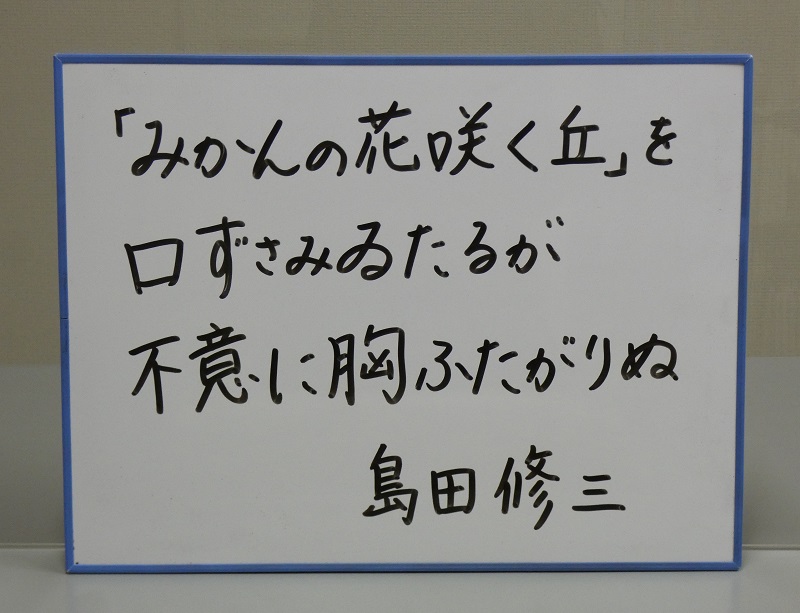 「みかんの花咲く丘」を
口ずさみゐたるが
不意に胸ふたがりぬ
島田修三